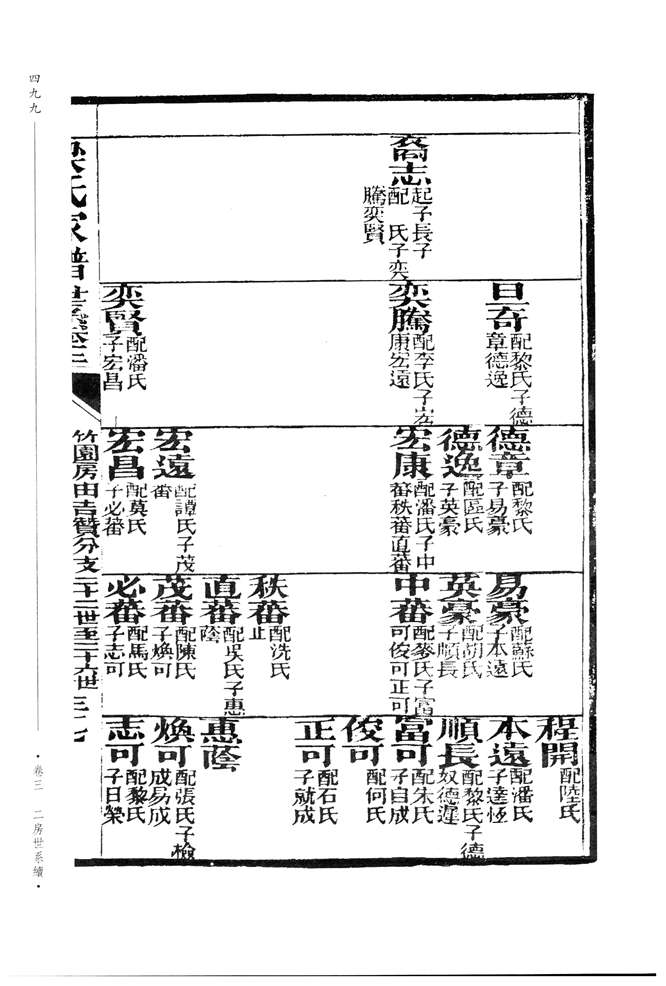 四九九
卷三 二房世系續
裔志
起子長子
配 氏子奕
騰奕賢
旦奇
配黎氏子德
章德逸
奕騰
配李氏子宏
康宏遠
奕賢
配潘氏
子宏昌
德章
配黎氏
子易豪
德逸
配區氏
子英豪
宏康
配潘氏子中
蕃秩蕃直蕃
宏遠
配譚氏子茂
蕃
宏昌
配莫氏
子必蕃
易豪
配蘇氏
子本遠
英豪
配胡氏
子順長
中蕃
配麥氏子富
可俊可正可
秩蕃
配洗氏
止
直蕃
配吳氏子惠
蔭
茂蕃
配陳氏
子煥可
必蕃
配馬氏
子志可
程開
配陸氏
本遠
配潘氏
子達恆
順長
配黎氏子德
奴德遲
富可
配朱氏
子自成
俊可
配何氏
正可
配石氏
子就成
惠蔭
煥可
配張氏子檢
成易成
志可
配黎氏
子日榮
氏家譜世系卷三
竹園房由吉贊分支二十二世至二十六世 三七